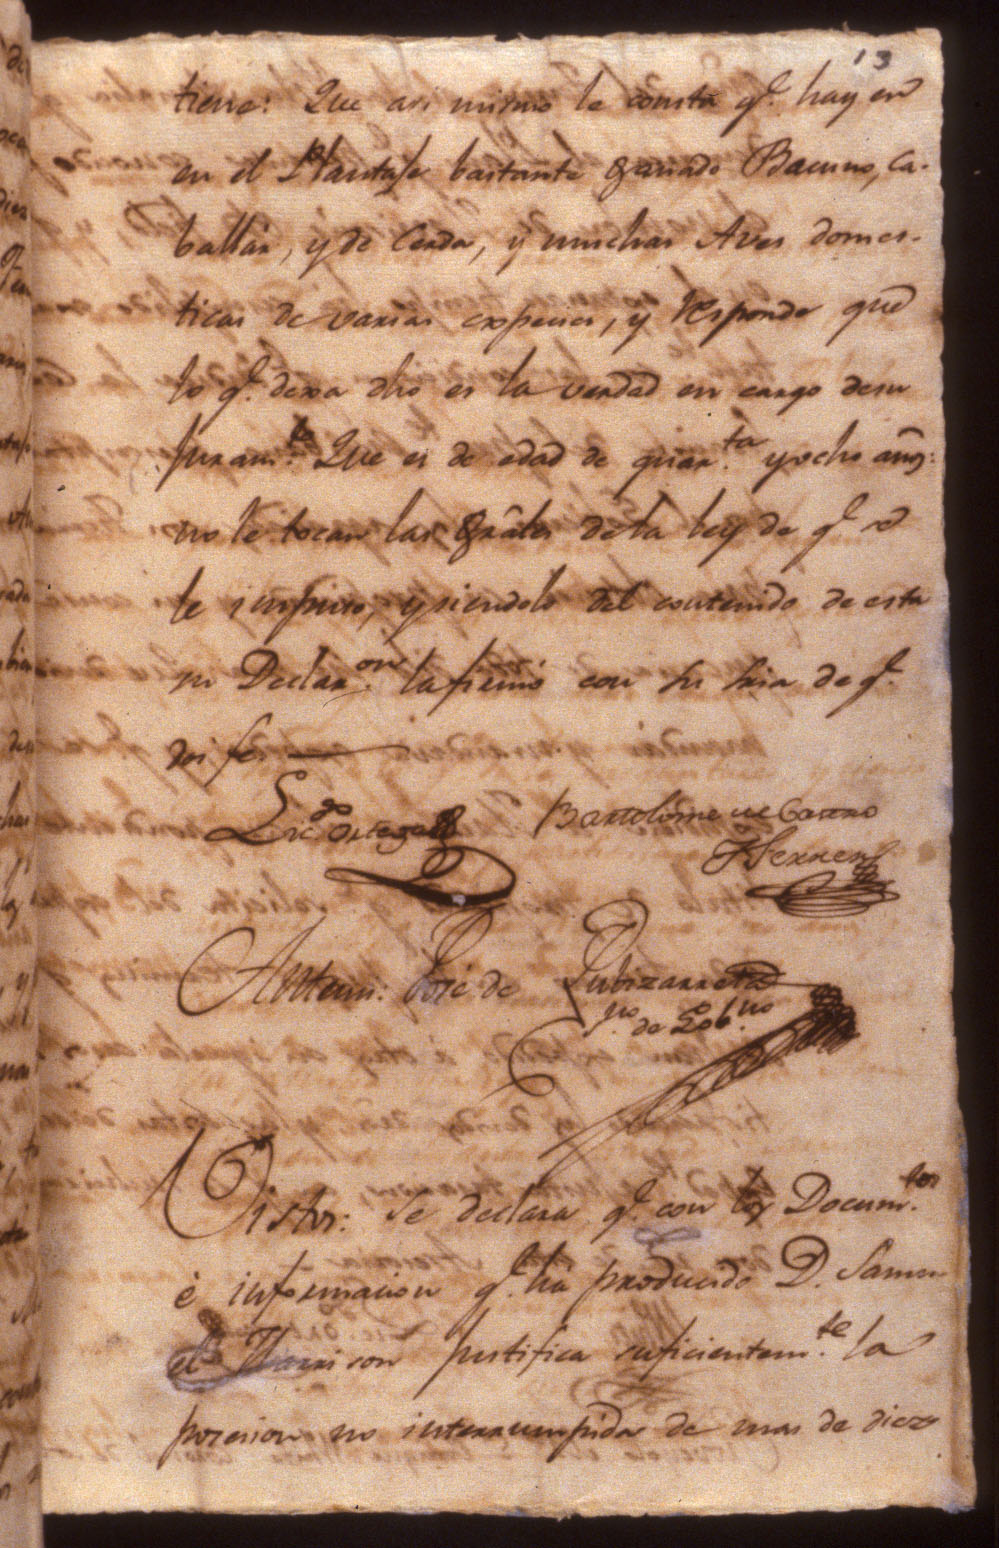 13
tiene: Que asi mismo le consta q.e hay en
en el Plantaje bastante Ganado Bacuno, Ca-
ballar, y de Cerda, y muchas Aves domes-
ticas de varias expecies, y responde que
lo q.e dexa dho es la verdad en cargo desu
Juram.to Que es de edad de quar.ta y ocho años:
no le tocan las Grâles dela ley de q.e se
le inspiro, y siendolo del contenido de esta
su Declar.on la firmó con su Sria de q.e
doi fe.
Lic.do Ortega
Bartolome de Castro
y Ferrer
Antemi: José de Zubizarreta
s.no de Gob.no
Vistos: Se declara q.e con los Docum.tos
è informacion q.e ha producido D. Samu
el Harrison justifica suficientem.te la
posesion no interrumpida de mas de diez